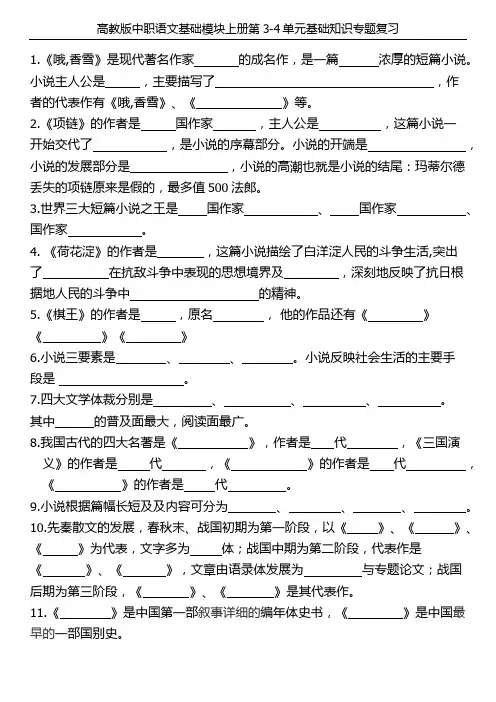 高教版中职语文基础模块上册第3-4单元基础知识专题复习
1.《哦,香雪》是现代著名作家_______的成名作，是一篇______浓厚的短篇小说。
小说主人公是_____，主要描写了__________________________________，作
者的代表作有《哦,香雪》、《_____________》等。
2.《项链》的作者是_____国作家______，主人公是_________，这篇小说一
开始交代了___________，是小说的序幕部分。小说的开端是_______________，
小说的发展部分是______________，小说的高潮也就是小说的结尾：玛蒂尔德
丢失的项链原来是假的，最多值500法郎。
3.世界三大短篇小说之王是____国作家___________、____国作家__________、
国作家__________。
4. 《荷花淀》的作者是_______，这篇小说描绘了白洋淀人民的斗争生活,突出
了__________在抗敌斗争中表现的思想境界及________，深刻地反映了抗日根
据地人民的斗争中___________________的精神。
5.《棋王》的作者是____，原名_______，他的作品还有《________》
《________》《________》
6.小说三要素是_______、________、________。小说反映社会生活的主要手
段是___________________。
7.四大文学体裁分别是________、_________、_________、________。
其中______的普及面最大，阅读面最广。
8.我国古代的四大名著是《__________》，作者是___代_______，《三国演
义》的作者是____代______，《___________》的作者是___代________，
《__________》的作者是____代_______。
9.小说根据篇幅长短及及内容可分为_______、________、_______、_______。
10.先秦散文的发展，春秋末、战国初期为第一阶段，以《____》、《_____》、
《____》为代表，文字多为____体；战国中期为第二阶段，代表作是
《______》、《______》，文章由语录体发展为_________与专题论文；战国
后期为第三阶段，《_______》、《_______》是其代表作。
11.《_______》是中国第一部叙事详细的编年体史书，《________》是中国最
早的一部国别史。